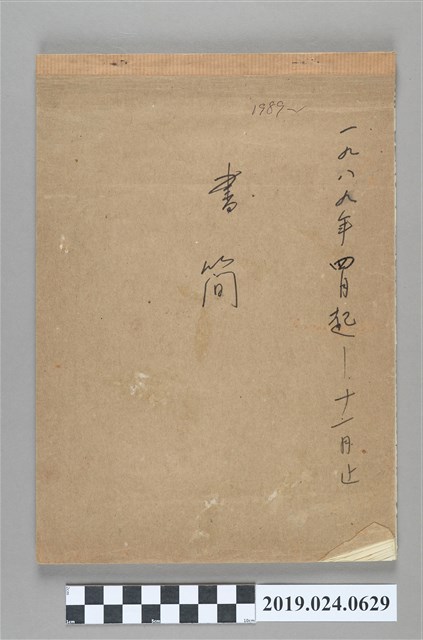 1989~
一九八九年四月起—十二月止
書簡
2019.024.0629
1cm 5cm 10cm